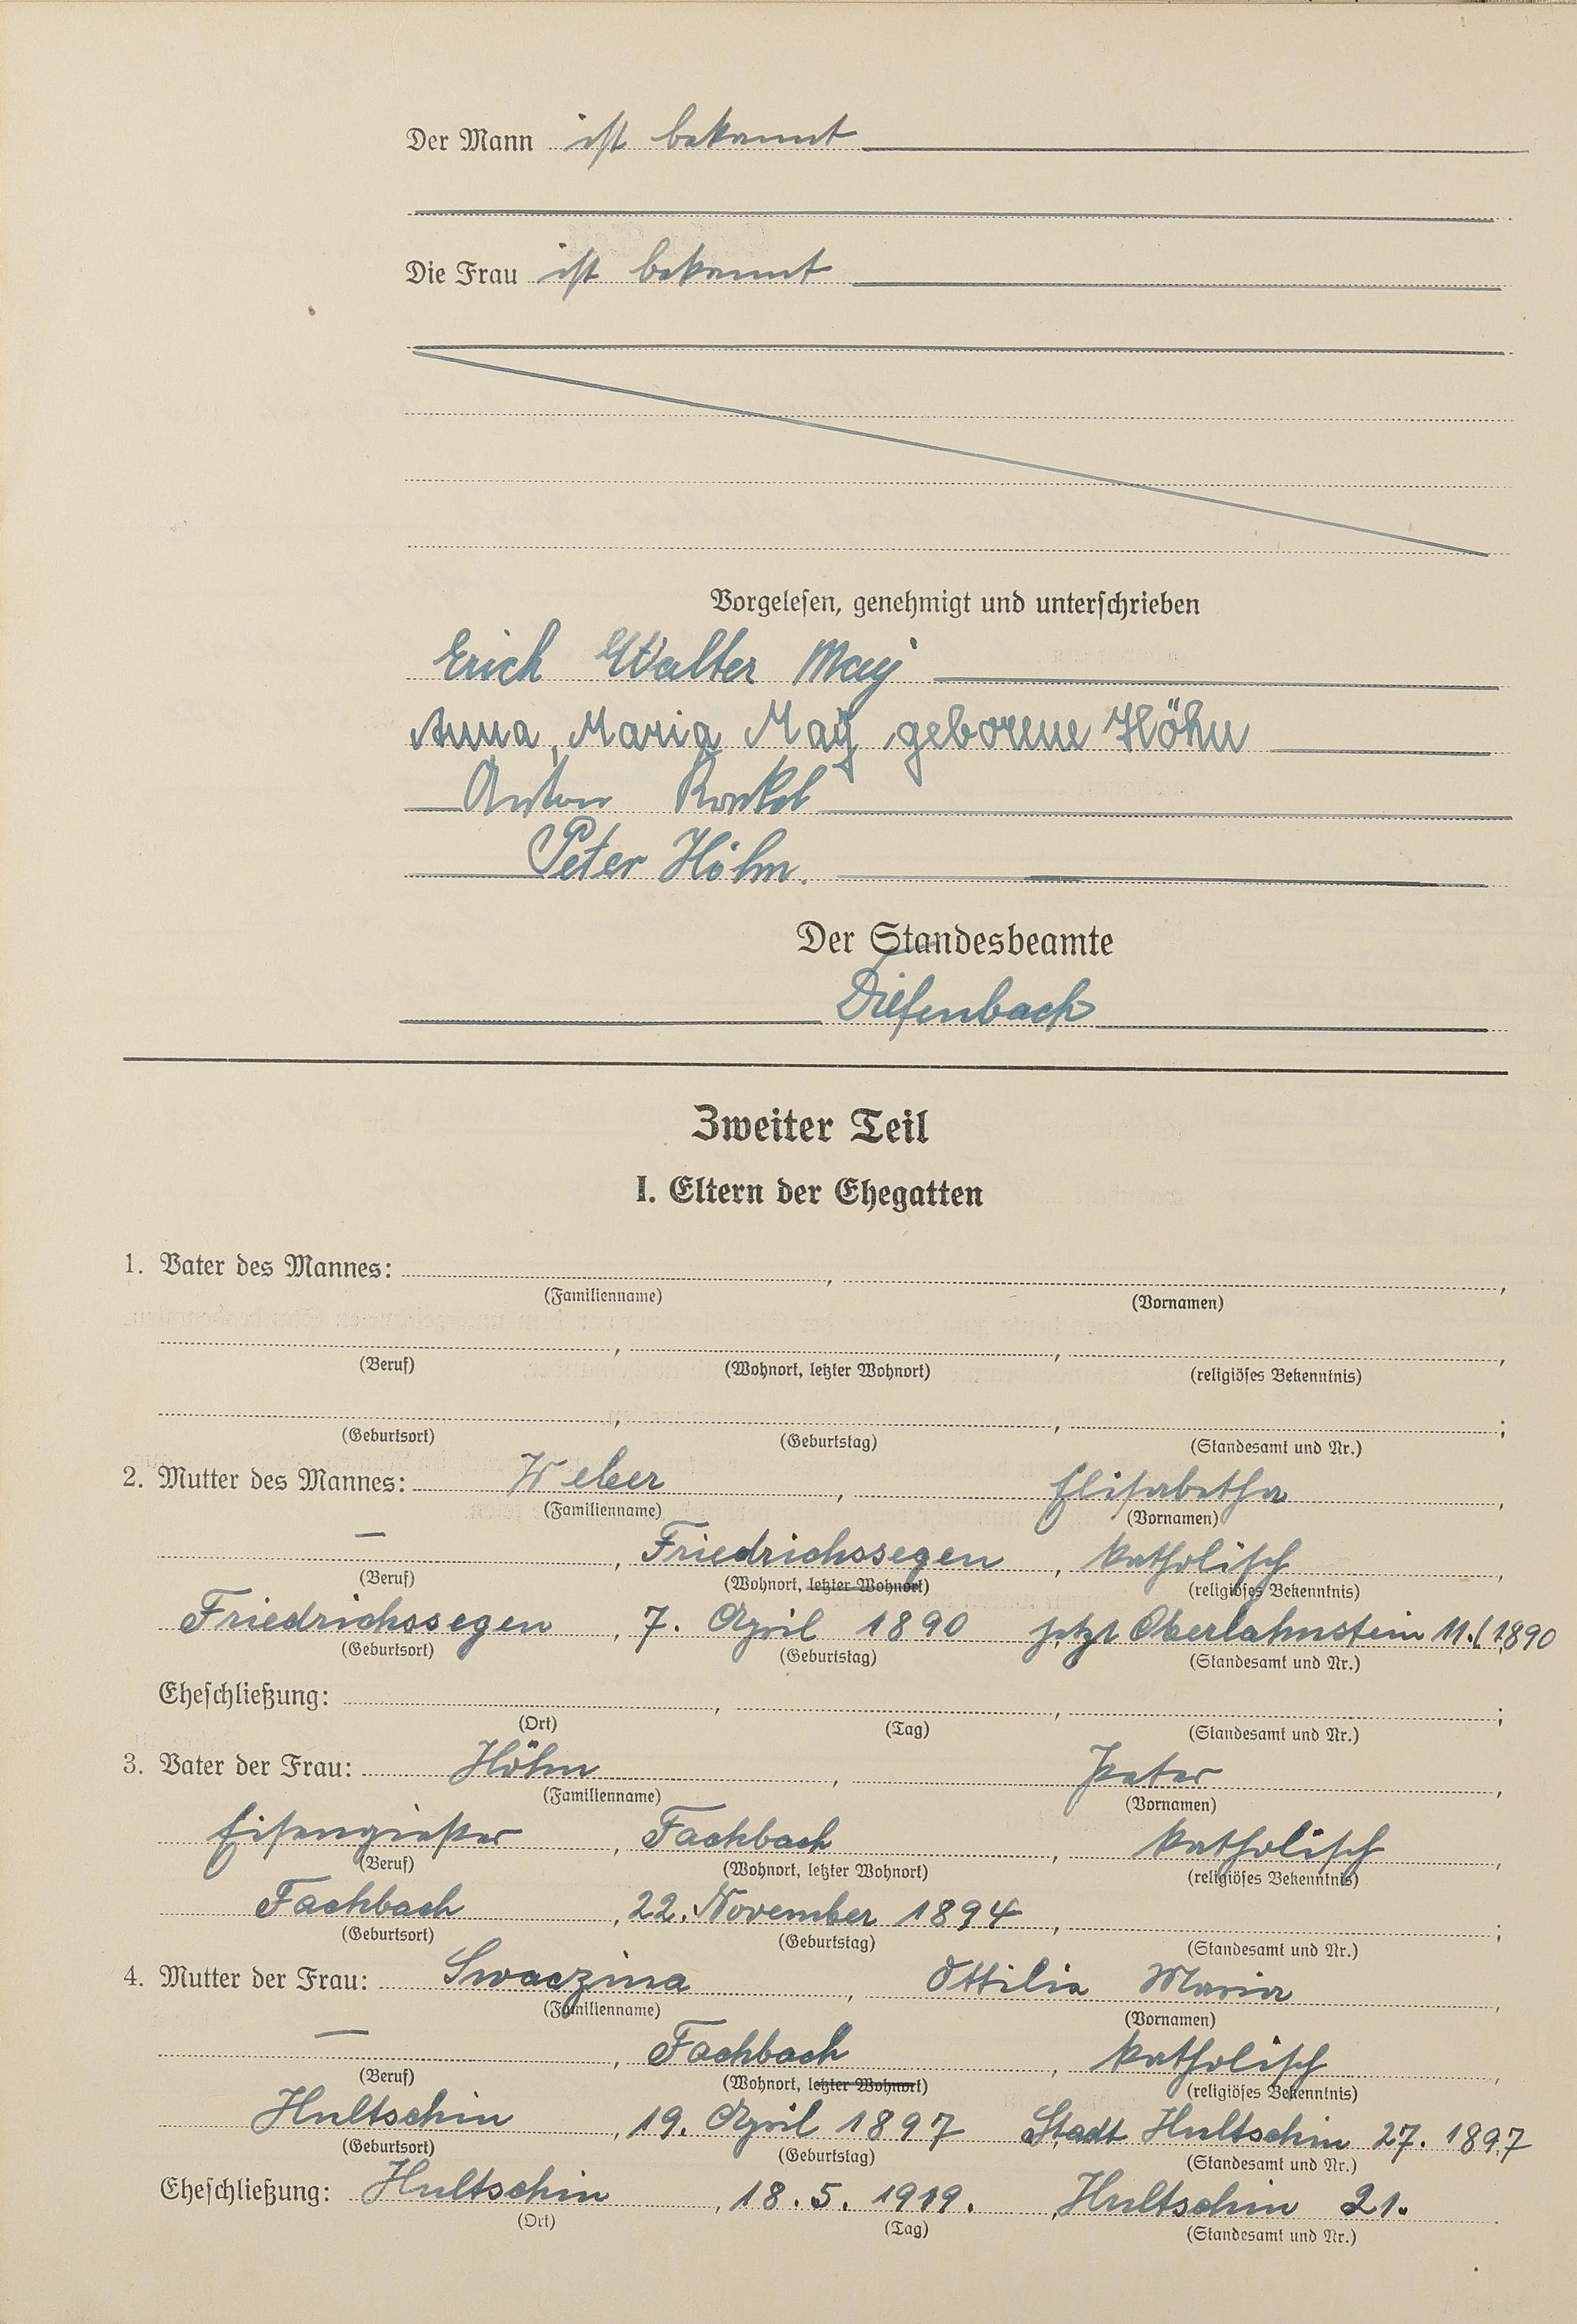 Der Mann ist bekannt
Die Frau ist bekannt
Vorgelesen, genehmigt und unterschrieben
Erich Walter May
Anna, Maria Maÿ geborene Höhn
Anton
Peter Höhn.
Der Standesbeamte
Diefenbach
Zweiter Teil
I. Eltern der Ehegatten
1. Vater des Mannes: , ,
(Familienname) (Vornamen)
, , ,
(Beruf) (Wohnort, letzter Wohnort) (religiöses Bekenntnis)
, , ;
(Geburtsort) (Geburtstag) (Standesamt und Nr.)
2. Mutter des Mannes: Weber , Elisabetha ,
(Familienname) (Vornamen)
— , Friedrichssegen , katholisch ,
(Beruf) (Wohnort, letzter Wohnort) (religiöses Bekenntnis)
Friedrichssegen , 7. April 1890 jetzt Oberlahnstein 11./1890
(Geburtsort) (Geburtstag) (Standesamt und Nr.)
Eheschließung: , , ;
(Ort) (Tag) (Standesamt und Nr.)
3. Vater der Frau: Höhn , Peter ,
(Familienname) (Vornamen)
Eisengießer , Fachbach , katholisch ,
(Beruf) (Wohnort, letzter Wohnort) (religiöses Bekenntnis)
Fachbach , 22. November 1894 , ;
(Geburtsort) (Geburtstag) (Standesamt und Nr.)
4. Mutter der Frau: Swaczina , Ottilia Maria ,
(Familienname) (Vornamen)
— , Fachbach , katholisch ,
(Beruf) (Wohnort, letzter Wohnort) (religiöses Bekenntnis)
Hultschin , 19. April 1897 Stadt Hultschin 27. 1897
(Geburtsort) (Geburtstag) (Standesamt und Nr.)
Eheschließung: Hultschin , 18. 5. 1919. , Hultschin 21.
(Ort) (Tag) (Standesamt und Nr.)